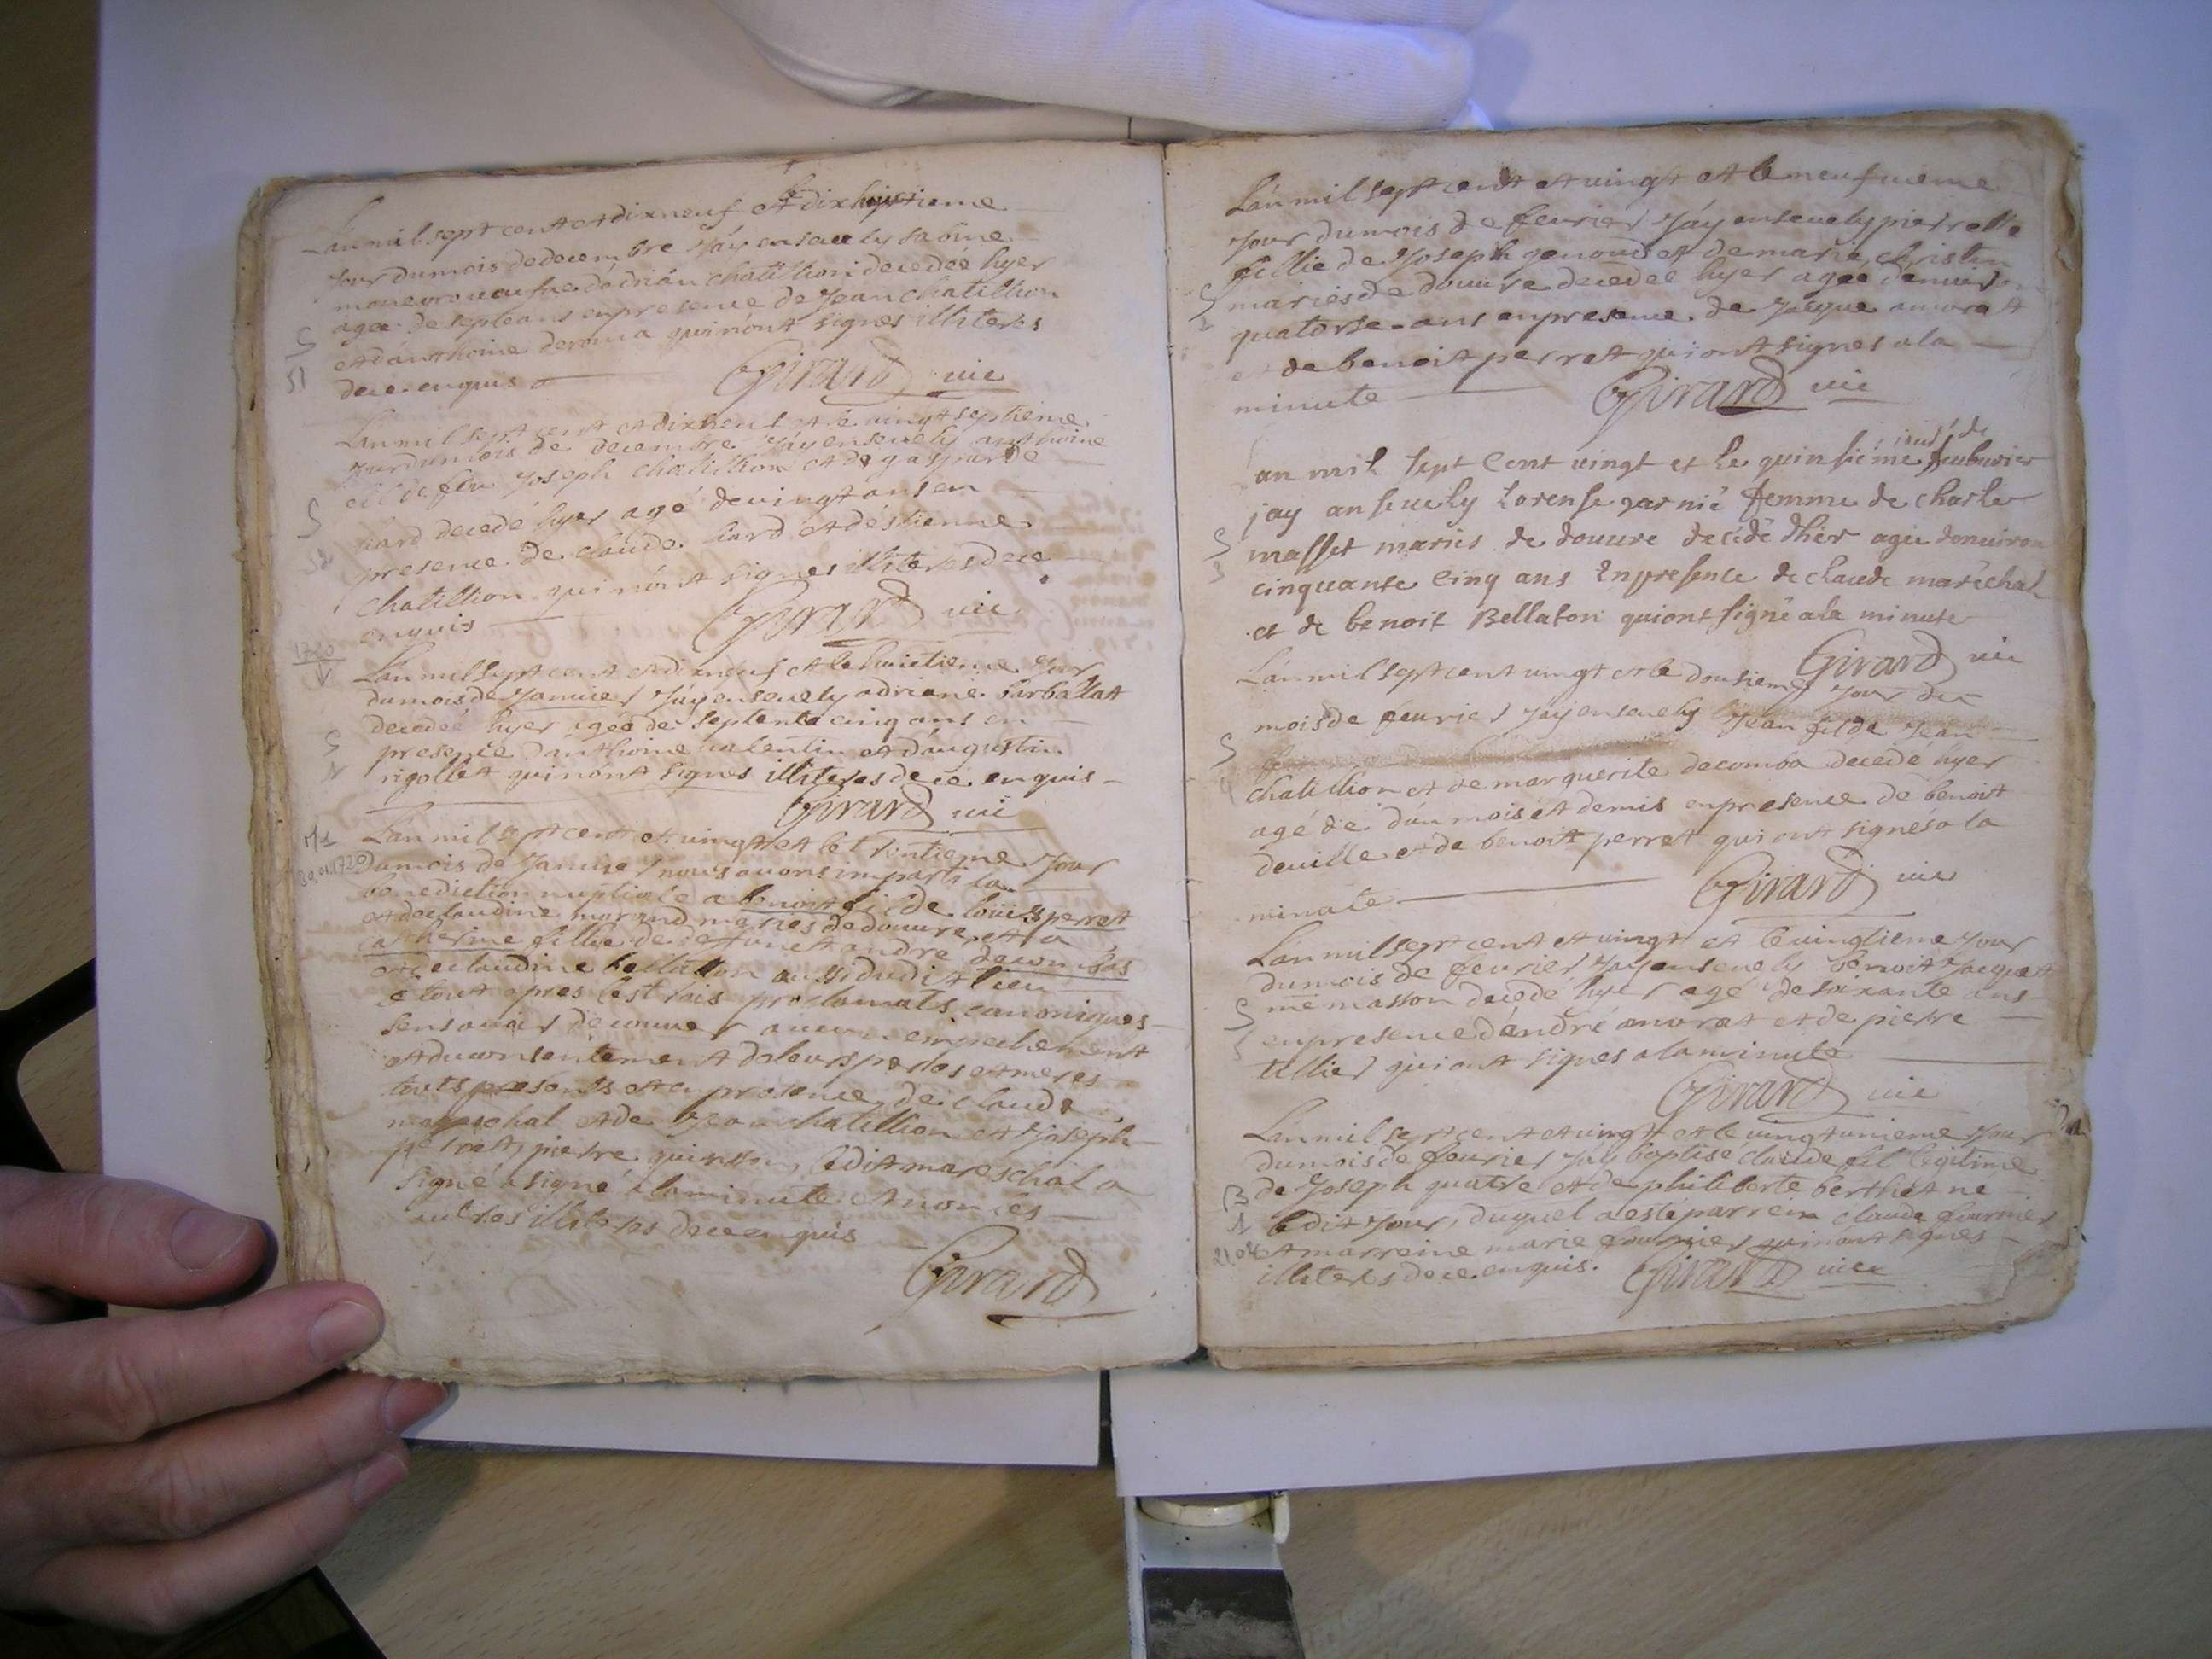 Lán mil sept cent et dixneuf et dixhuictieme
Jour du mois de decembre Jáy enseuely
veufue dádrián chatillion decedee hyer
agee de septe ans en presence de Jean chatillion
et dánthoine deroma qui nónt signés illiteres
de ce enquis
Girard vic
S
51
Lán mil sept cent et dixneuf et le vingt septieme
Jour du mois de decembre Jáy enseuely anthoine
fil de feu Joseph chatillion et de gasparde
liard decedé hyer agé de vingt ans en
presence de claude liard et déstienne
chatillion qui nónt signés illiteres de ce
enquis
Girard vic
S
52
1720
Lán mil sept cent et dixneuf et le huictieme Jour
du mois de Januier Jáy enseuely adriane barballat
decedeé hyer agée de septente cinq ans en
presence dánthoine valentin et dáugustin
rigollet qui nónt signés illiteres de ce enquis
Girard vic
S
1
M1
30.01.1720
Lán mil sept cent et vingt et le trintieme Jour
du mois de Januier nous auons imparti la
benediction nuptiale a benoit fil de louis perrat
et de claudine morand mariés de douure et a
catherine fillie de defunct andre decombas
et de claudine bellaton aussi dudit lieu
le tout apres lest rois proclamats canoniques
sens auoir decouuer aucun empechement
et du consentement de leurs peres et meres
touts presents et en presence de claude
mareschal et de Jean chatillion et Joseph
perrat, pierre quinson, ledit mareschal a
signé a signé a la minute et non les
autres illiteres de ce enquis
Girard
Lán mil sept cent et vingt et le neufuieme
Jour du mois de feurier Jáy enseuely pierrette
fillie de Joseph genoud et de marie christin
mariés de douure decedeé hyer agee denuiron
quatorse ans en presence de Jacque amorat
et de benoit perrat qui ont signés a la
minute
Girard vic
S
2
an mil sept cent vingt et le quinsiéme jeubvrier
jour de
jay anseuely Lorense garnié femme de charle
masset mariés de douure decédé dhiér agee denuiron
cinquante cinq ans En presence de claude maréchal
et de benoit Bellaton qui ont signé a la minute
Girard vic
S
3
Lán mil sept cent vingt et le dousieme Jour du
mois de feurier Jáy enseuely Jean fil de Jean
chatillion et de marguerite decomba decedé hyer
agé de dún mois et demis en presence de benoit
deville et de benoit perrat qui ont signés a la
minute
Girard vic
S
4
Lán mil sept cent et vingt et le vingtieme Jour
du mois de feurier Jáy enseuely benoit Jacquet
me masson decedé hyer agé de soixante ans
en presence dándré amorat et de pierre
tillier qui ont signés a la minute
Girard vic
S
5
Lán mil sept cent et vingt et le vingt unieme Jour
du mois de feurier Jáy baptisé claude fil légitime
de Joseph quatre et de philiberte berthet né
ledit Jour, duquel a esté parrein claude fournier
et marreine marie fournier qui nónt signés
illiteres de ce enquis. Girard vic
B
1
21.02